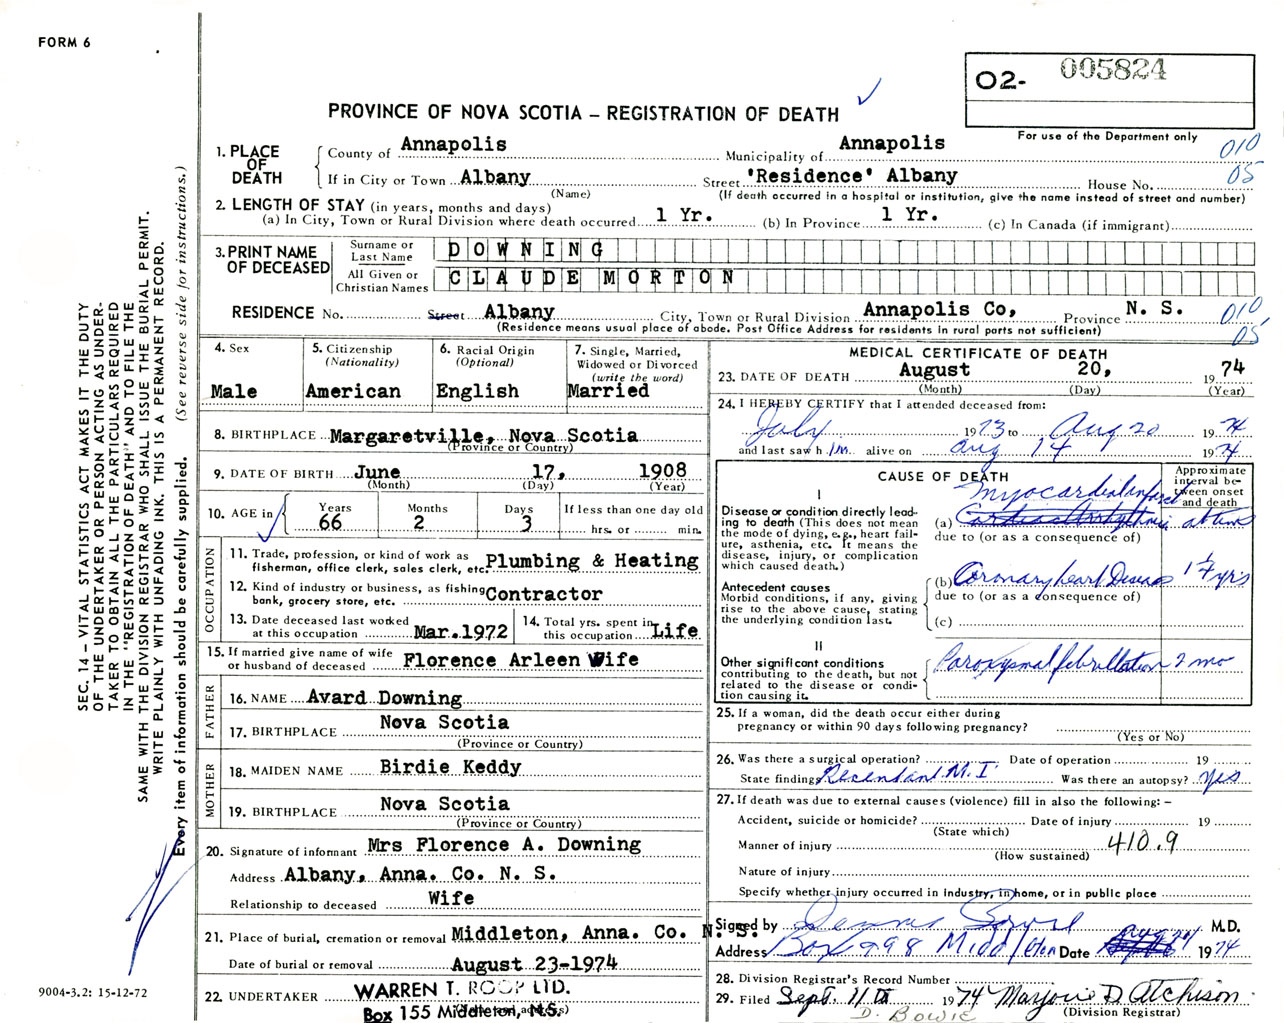 FORM 6
02- 005824
PROVINCE OF NOVA SCOTIA – REGISTRATION OF DEATH
For use of the Department only
010
05
1. PLACE OF DEATH
County of Annapolis Municipality of Annapolis
If in City or Town Albany Street 'Residence' Albany House No.
(Name) (If death occurred in a hospital or institution, give the name instead of street and number)
2. LENGTH OF STAY (in years, months and days)
(a) In City, Town or Rural Division where death occurred 1 Yr. (b) In Province 1 Yr. (c) In Canada (if immigrant)
3. PRINT NAME OF DECEASED
Surname or Last Name DOWNING
All Given or Christian Names CLAUDE MORTON
RESIDENCE No. Street Albany City, Town or Rural Division Annapolis Co, Province N. S. 010
(Residence means usual place of abode. Post Office Address for residents in rural parts not sufficient) 05
4. Sex
Male
5. Citizenship
(Nationality)
American
6. Racial Origin
(Optional)
English
7. Single, Married,
Widowed or Divorced
(write the word)
Married
8. BIRTHPLACE Margaretville, Nova Scotia
(Province or Country)
9. DATE OF BIRTH June 17, 1908
(Month) (Day) (Year)
10. AGE in
Years Months Days If less than one day old
66 2 3 hrs. or min.
OCCUPATION
11. Trade, profession, or kind of work as
fisherman, office clerk, sales clerk, etc. Plumbing & Heating
12. Kind of industry or business, as fishing
bank, grocery store, etc. Contractor
13. Date deceased last worked
at this occupation Mar. 1972
14. Total yrs. spent in
this occupation Life
15. If married give name of wife
or husband of deceased Florence Arleen Wife
FATHER
16. NAME Avard Downing
17. BIRTHPLACE Nova Scotia
(Province or Country)
MOTHER
18. MAIDEN NAME Birdie Keddy
19. BIRTHPLACE Nova Scotia
(Province or Country)
20. Signature of informant Mrs Florence A. Downing
Address Albany, Anna. Co. N. S.
Relationship to deceased Wife
21. Place of burial, cremation or removal Middleton, Anna. Co. N. S.
Date of burial or removal August 23-1974
22. UNDERTAKER WARREN T. ROOP LTD.
Box 155 Middleton, N.S.
MEDICAL CERTIFICATE OF DEATH
23. DATE OF DEATH August 20, 19 74
(Month) (Day) (Year)
24. I HEREBY CERTIFY that I attended deceased from:
July 1973 to Aug 20 1974
and last saw h im alive on Aug 14 1974
CAUSE OF DEATH
Approximate interval between onset and death
I
Disease or condition directly leading to death (This does not mean the mode of dying, e.g., heart failure, asthenia, etc. It means the disease, injury, or complication which caused death.)
Myocardial infarct
(a) Cardiac Arrhythmia
due to (or as a consequence of)
Antecedent causes
Morbid conditions, if any, giving rise to the above cause, stating the underlying condition last.
(b) Coronary heart Disease 17 yrs
due to (or as a consequence of)
(c)
II
Other significant conditions
contributing to the death, but not related to the disease or condition causing it.
Paroxysmal fibrillation 2 mo
25. If a woman, did the death occur either during
pregnancy or within 90 days following pregnancy?
(Yes or No)
26. Was there a surgical operation? Date of operation 19
State findings M.I. Was there an autopsy? yes
27. If death was due to external causes (violence) fill in also the following: –
Accident, suicide or homicide? Date of injury 19
(State which)
Manner of injury 410.9
(How sustained)
Nature of injury
Specify whether injury occurred in industry, in home, or in public place
Signed by Dennis M.D.
Address Box 998 Middleton Date Aug 1974
28. Division Registrar's Record Number
29. Filed Sept. 11 1974 Marjorie D. Atchison
D. BOWIE (Division Registrar)
SEC. 14 – VITAL STATISTICS ACT MAKES IT THE DUTY
OF THE UNDERTAKER OR PERSON ACTING AS UNDER-
TAKER TO OBTAIN ALL THE PARTICULARS REQUIRED
IN THE "REGISTRATION OF DEATH" AND TO FILE THE
SAME WITH THE DIVISION REGISTRAR WHO SHALL ISSUE THE BURIAL PERMIT.
WRITE PLAINLY WITH UNFADING INK. THIS IS A PERMANENT RECORD.
Every item of information should be carefully supplied. (See reverse side for instructions.)
9004-3.2: 15-12-72